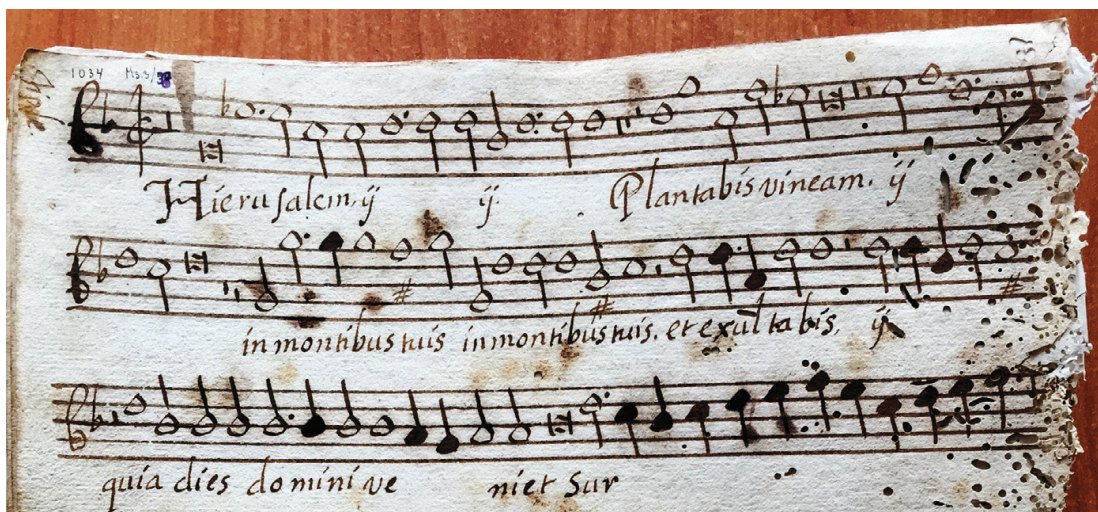 1034 Ms.s/38
Hierusalem, ij ij. Plantabis vineam. ij
in montibus tuis in montibus tuis. et exultabis, ij
quia dies domini ve niet Sur